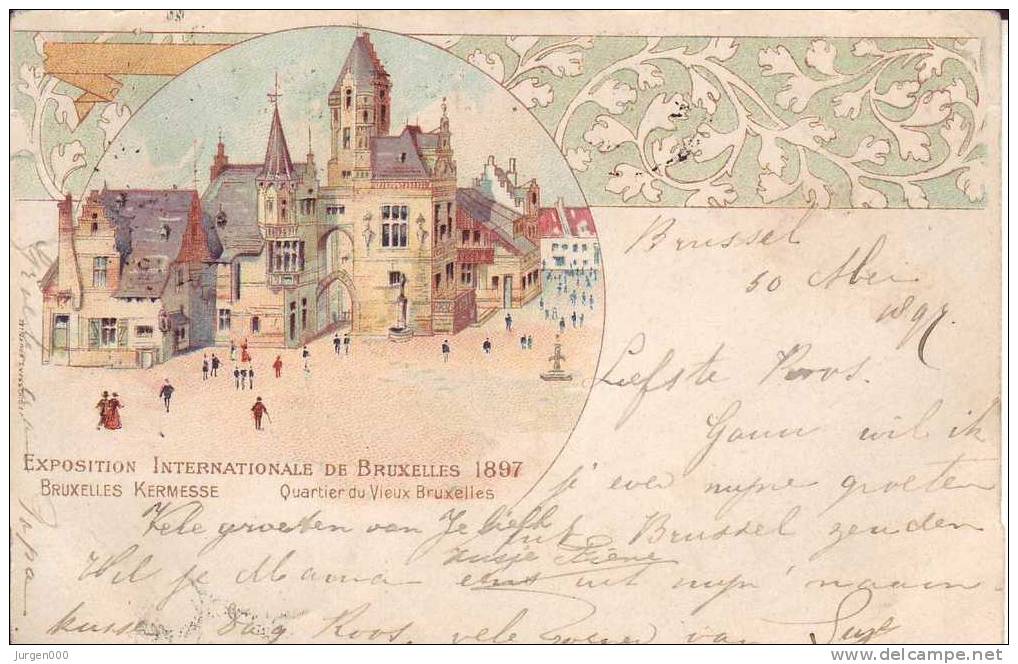 Brussel
30 Mei
1897.
Liefste Roos.
Gaan wil ik
EXPOSITION INTERNATIONALE DE BRUXELLES 1897
je even mijne groeten
BRUXELLES KERMESSE Quartier du Vieux Bruxelles
Vele groeten van Je liefh
uit Brussel zenden
zusje
Wil je Mama eens uit mijn naam
kussen Dag Roos. vele van
Papa
Jurgen000
www.delcampe.net